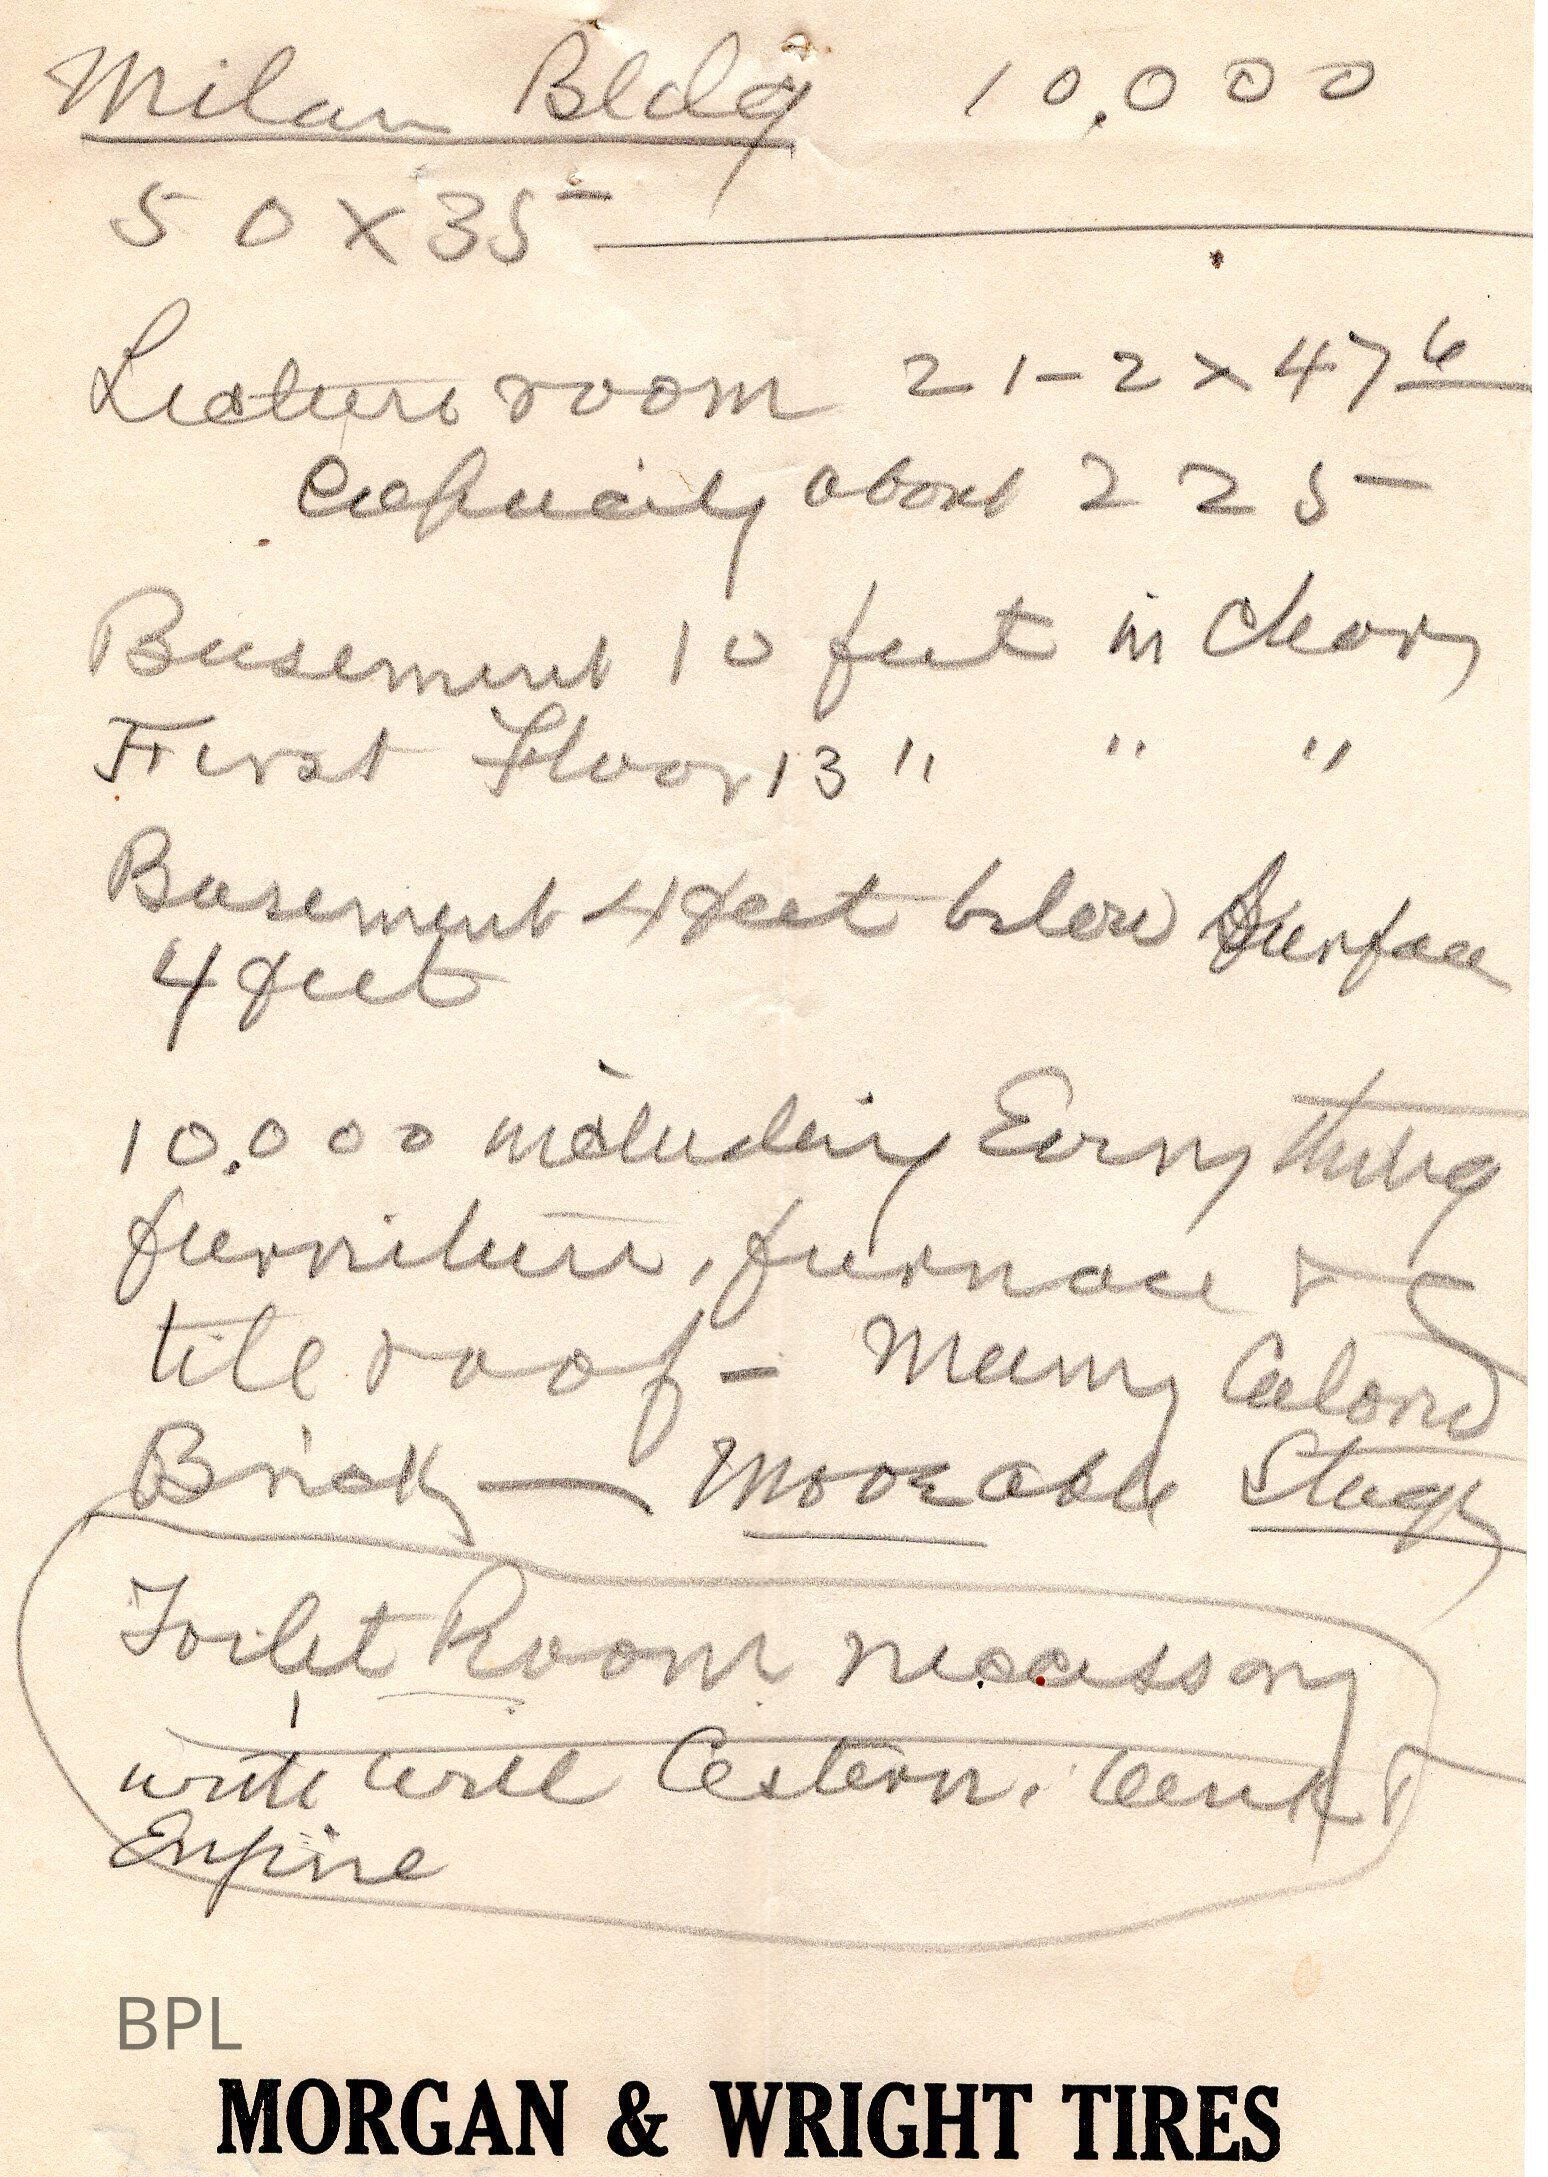 Milan Bldg 10,000
50 x 35
Lecture room 21-2 x 47 6
Capacity about 225
Basement 10 feet in clear
First Floor 13 " " "
Basement 4 feet below Surface
4 feet
10,000 including Every thing
furniture, furnace &
tile roof - Many Colored
Brick — Moveable Stage
Toilet Room necessary
with well Cestern, tank &
Engine
BPL
MORGAN & WRIGHT TIRES